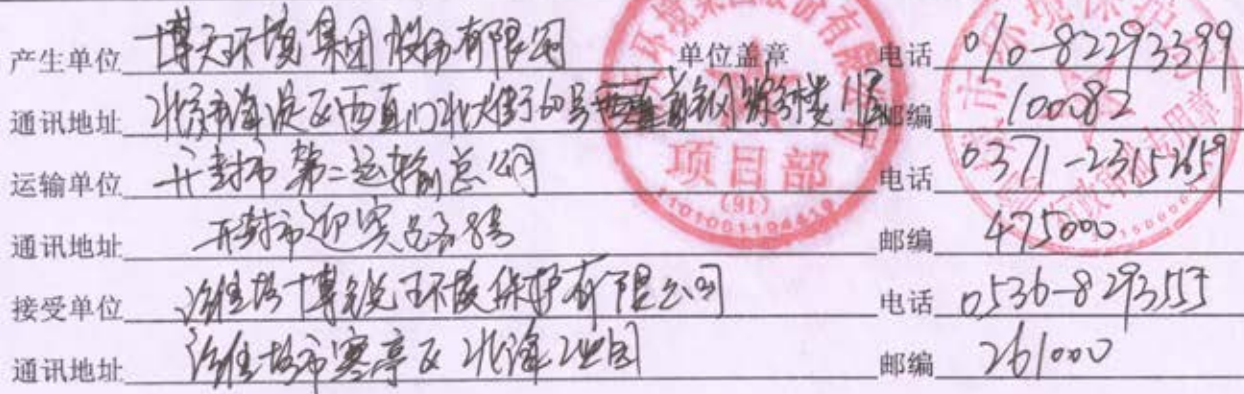 产生单位 博天环境集团股份有限公司 单位盖章 电话 010-82293399
通讯地址 北京市海淀区西直门北大街60号首钢综合楼 邮编 100082
运输单位 开封市第二运输总公司 电话 0371-23152659
通讯地址 开封市迎宾路8号 邮编 475000
接受单位 潍坊博锐环境保护有限公司 电话 0536-8293555
通讯地址 潍坊市寒亭区北海工业园 邮编 261000
项目部
(91)